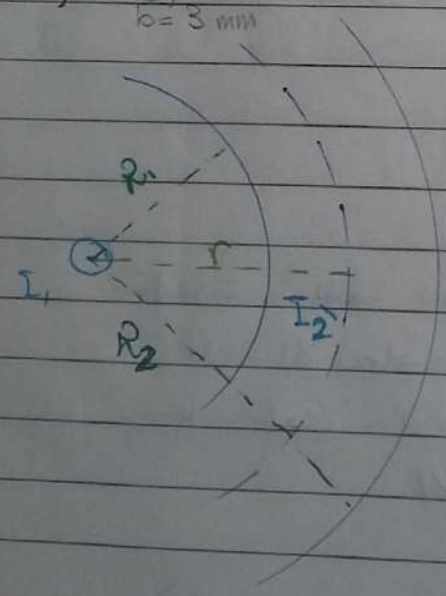 b = 3 mm
R₁
r
I₁
I₂
R₂